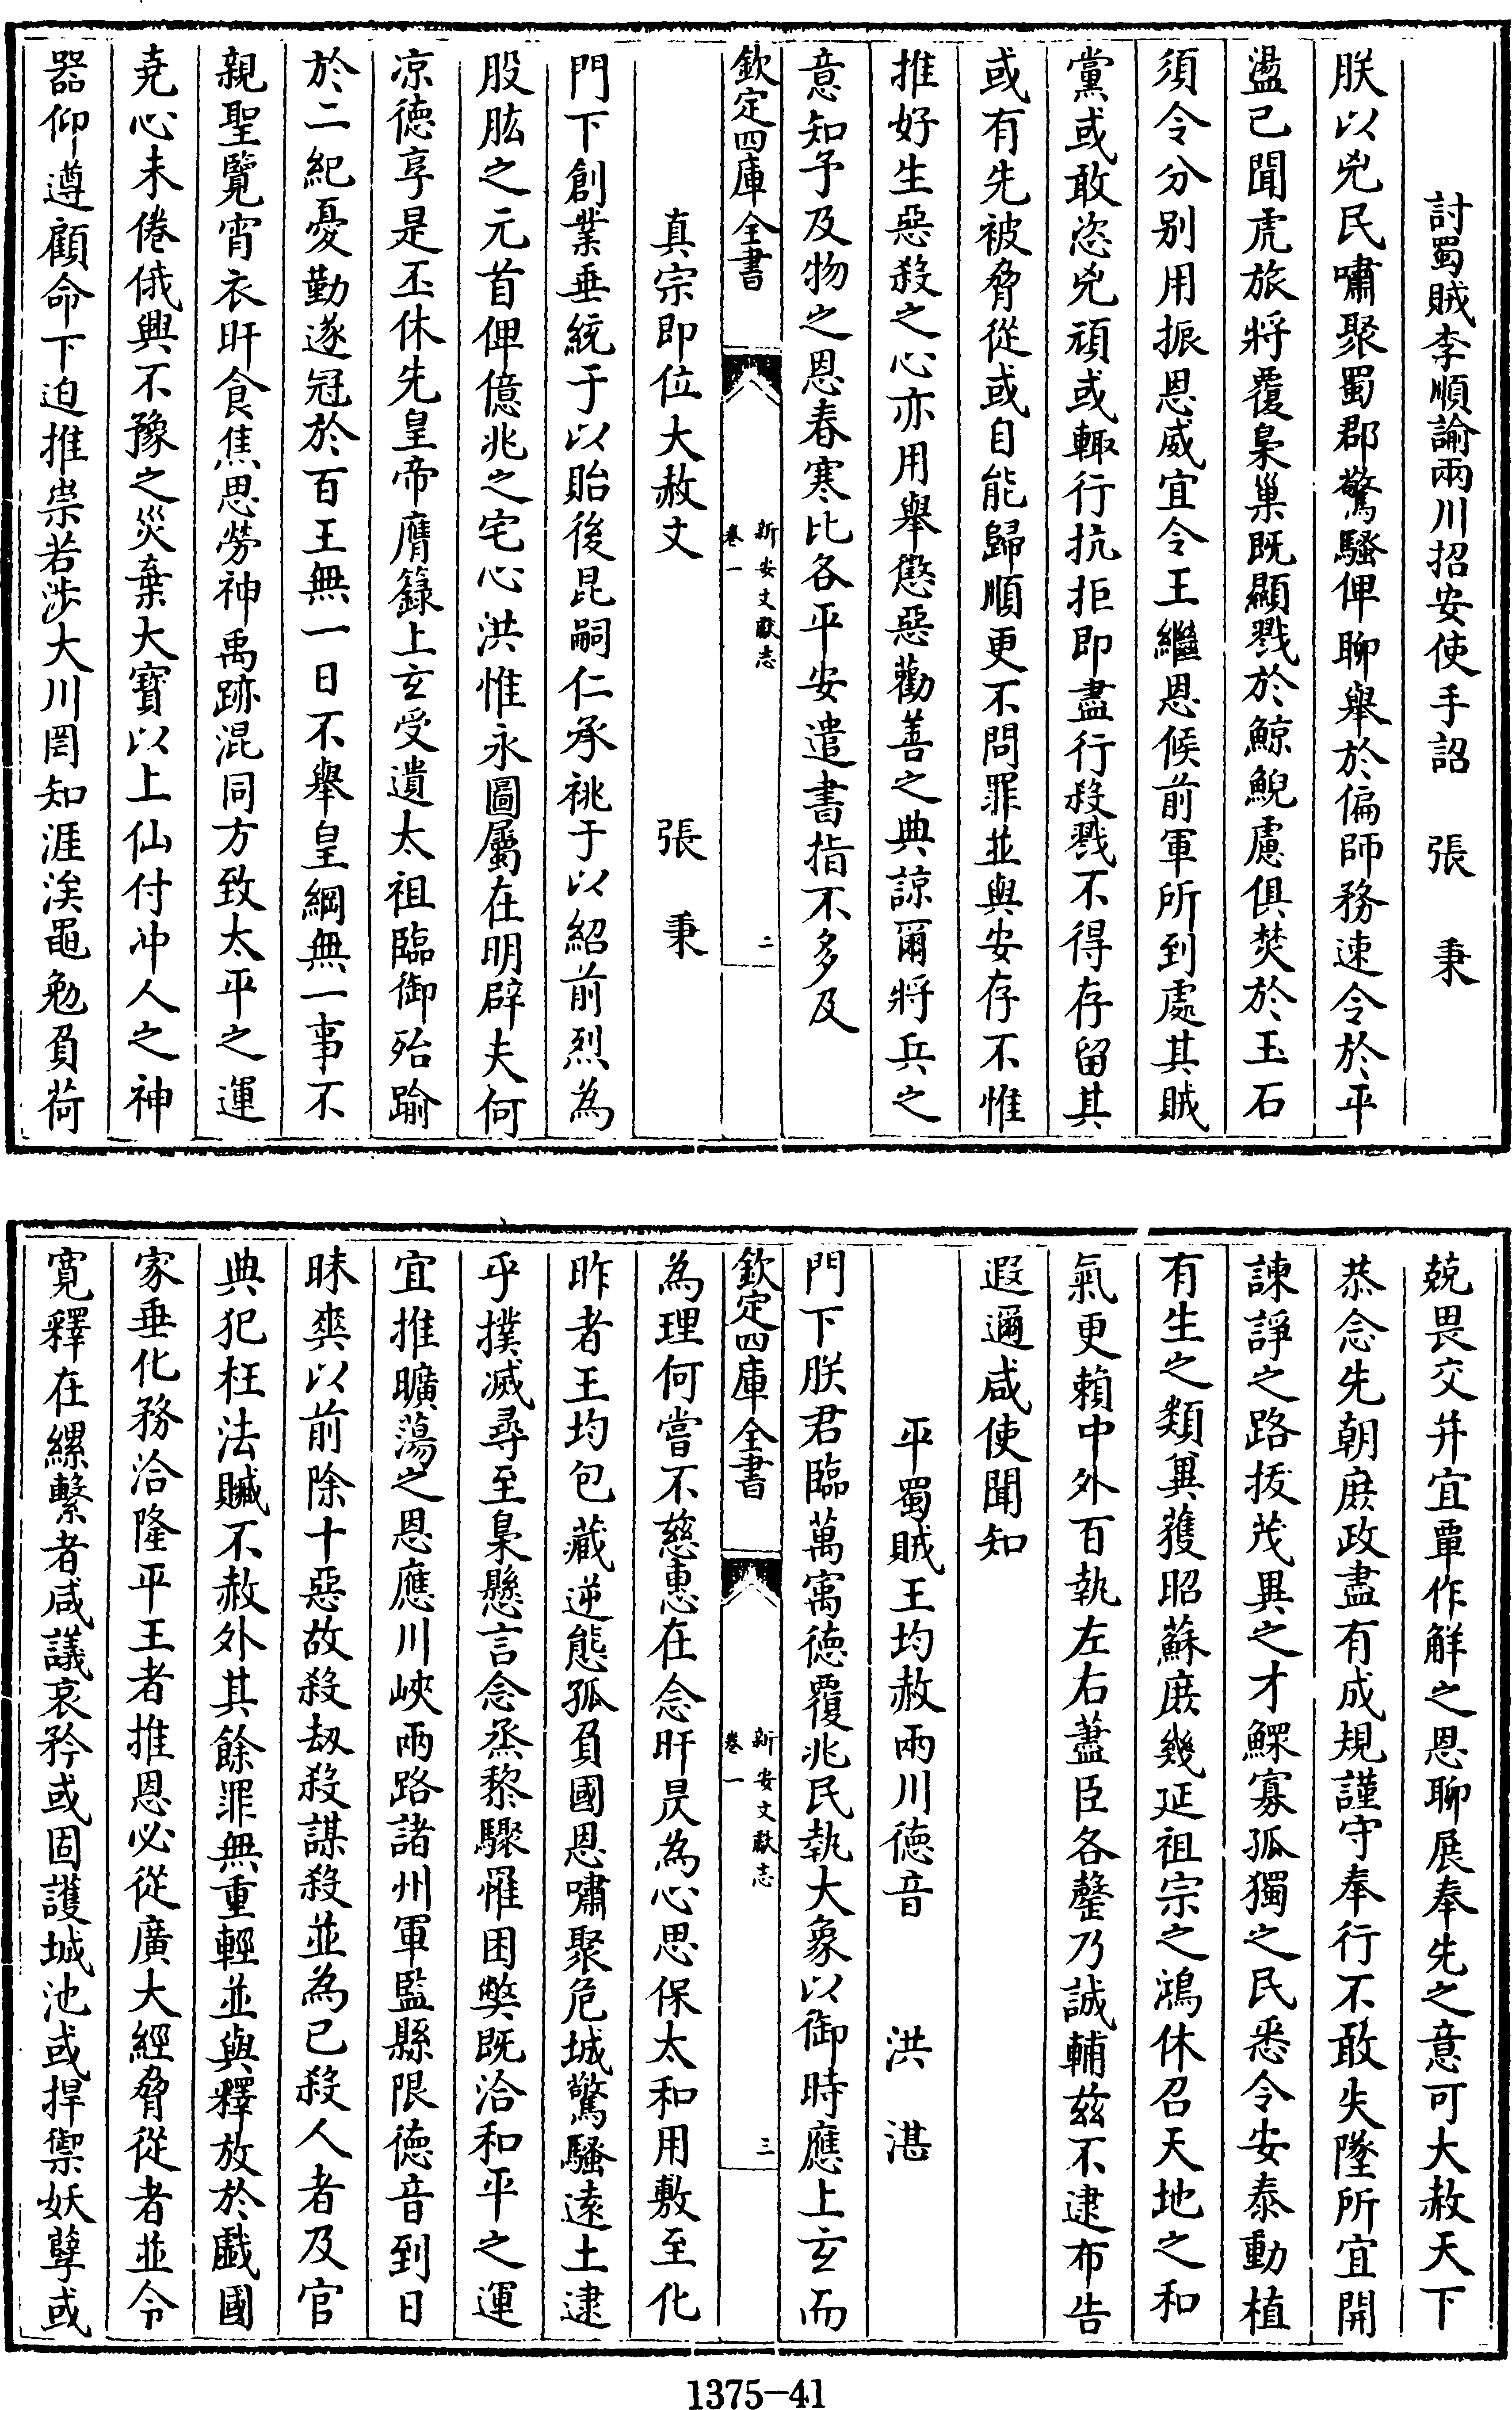 討蜀賊李順諭兩川招安使手詔　張　秉
朕以兇民嘯聚蜀郡驚騷俾聊舉於偏師務速令於平
盪已聞虎旅將覆梟巢既顯戮於鯨鯢慮俱焚於玉石
須令分别用振恩威宜令王繼恩候前軍所到處其賊
黨或敢恣兇頑或輙行抗拒即盡行殺戮不得存留其
或有先被脅從或自能歸順更不問罪並與安存不惟
推好生惡殺之心亦用舉懲惡勸善之典諒爾將兵之
意知予及物之恩春寒比各平安遣書指不多及
欽定四庫全書　新安文獻志　卷一　二
真宗即位大赦文　張　秉
門下創業垂統于以貽後昆嗣仁承祧于以紹前烈為
股肱之元首俾億兆之宅心洪惟永圖屬在明辟夫何
凉徳享是丕休先皇帝膺籙上玄受遺太祖臨御殆踰
於二紀憂勤遂冠於百王無一日不舉皇綱無一事不
親聖覽宵衣旰食焦思勞神禹跡混同方致太平之運
尭心未倦俄興不豫之災棄大寳以上仙付冲人之神
器仰遵顧命下迫推崇若涉大川罔知涯涘黽勉負荷
兢畏交并宜覃作觧之恩聊展奉先之意可大赦天下
恭念先朝庶政盡有成規謹守奉行不敢失墜所宜開
諫諍之路抜茂異之才鰥寡孤獨之民悉令安泰動植
有生之類兾獲昭蘇庶幾延祖宗之鴻休召天地之和
氣更頼中外百執左右藎臣各罄乃誠輔兹不逮布告
遐邇咸使聞知
平蜀賊王均赦兩川徳音　洪　湛
門下朕君臨萬㝢徳覆兆民執大象以御時應上玄而
欽定四庫全書　新安文獻志　卷一　三
為理何嘗不慈惠在念旰昃為心思保太和用敷至化
昨者王均包藏逆態孤負國恩嘯聚危城驚騷逺土逮
乎撲滅尋至梟懸言念烝黎驟罹困弊既洽和平之運
宜推曠蕩之恩應川峽兩路諸州軍監縣限徳音到日
昧爽以前除十惡故殺刼殺謀殺並為已殺人者及官
典犯枉法贓不赦外其餘罪無重輕並與釋放於戲國
家垂化務洽隆平王者推恩必從廣大經脅從者並令
寛釋在縲繫者咸議哀矜或固護城池或捍禦妖孽或
1375-41